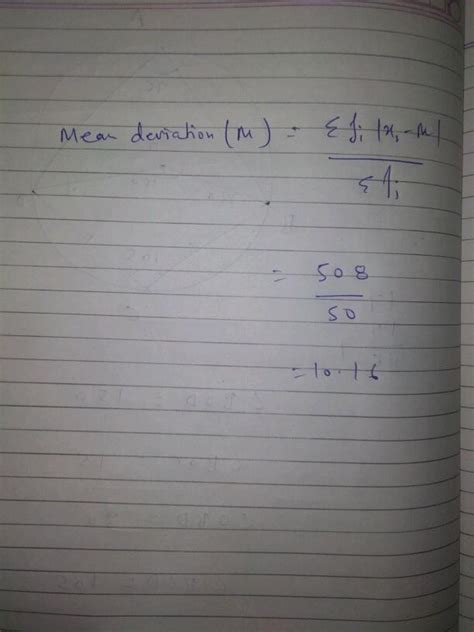 Mean deviation (M) = Σ fi |xi - M|
Σ fi
= 508
50
= 10.16